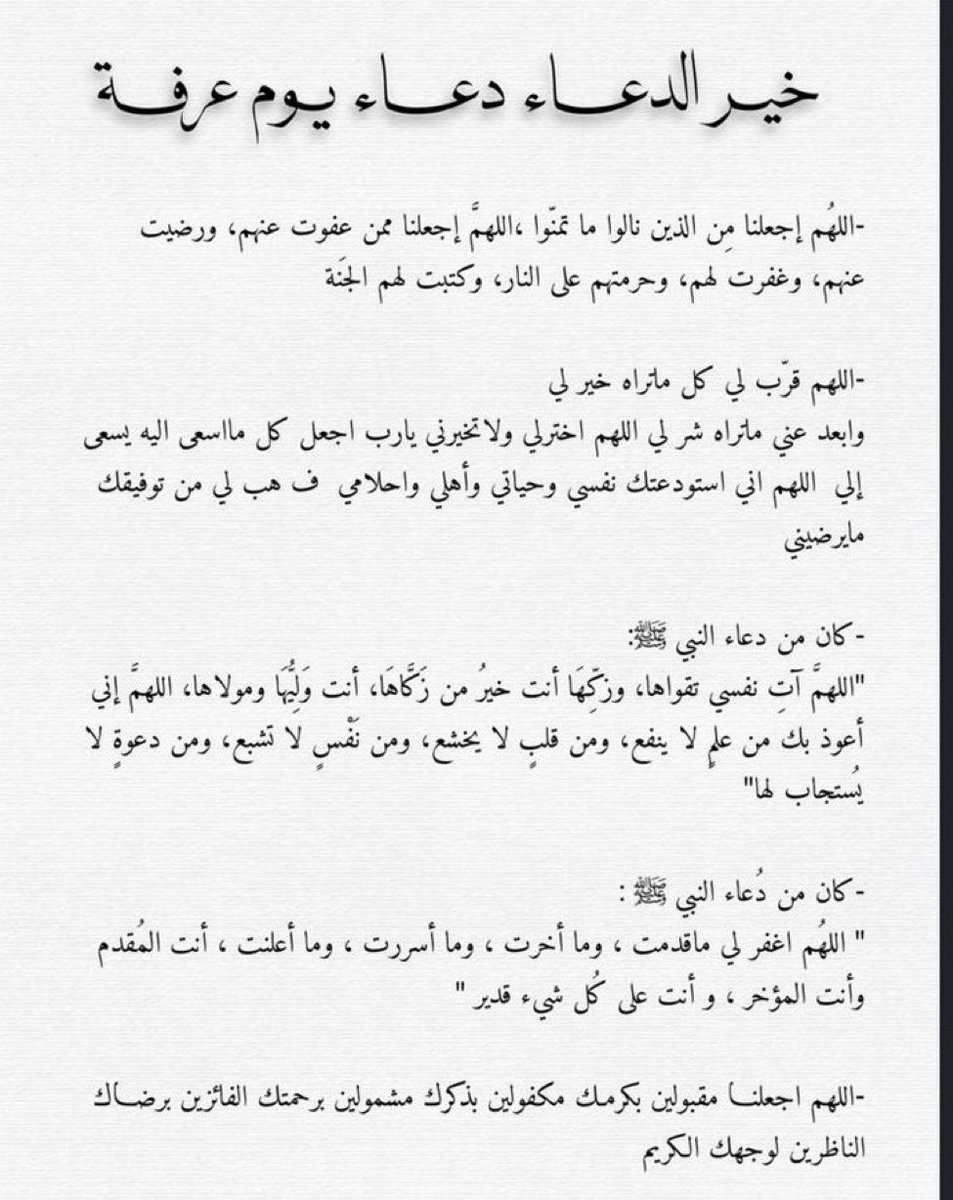 خير الدعاء دعاء يوم عرفة
-اللهُم إجعلنا مِن الذين نالوا ما تمنّوا ،اللهمَّ إجعلنا ممن عفوت عنهم، ورضيت
عنهم، وغفرت لهم، وحرمتهم على النار، وكتبت لهم الجَنة
-اللهم قرّب لي كل ماتراه خير لي
وابعد عني ماتراه شر لي اللهم اخترلي ولاتخيرني يارب اجعل كل مااسعى اليه يسعى
إلي اللهم اني استودعتك نفسي وحياتي وأهلي واحلامي ف هب لي من توفيقك
مايرضيني
-كان من دعاء النبي ﷺ:
"اللهمَّ آتِ نفسي تقواها، وزكِّهَا أنت خيرُ من زَكَّاهَا، أنت وَلِيُّهَا ومولاها، اللهمَّ إني
أعوذ بك من علمٍ لا ينفع، ومن قلبٍ لا يخشع، ومن نَفْسٍ لا تشبع، ومن دعوةٍ لا
يُستجاب لها"
-كان من دُعاء النبي ﷺ :
" اللهُم اغفر لي ماقدمت ، وما أخرت ، وما أسررت ، وما أعلنت ، أنت المُقدم
وأنت المؤخر ، و أنت على كُل شيء قدير "
-اللهم اجعلنـا مقبولين بكرمك مكفولين بذكرك مشمولين برحمتك الفائزين برضـاك
الناظرين لوجهك الكريم